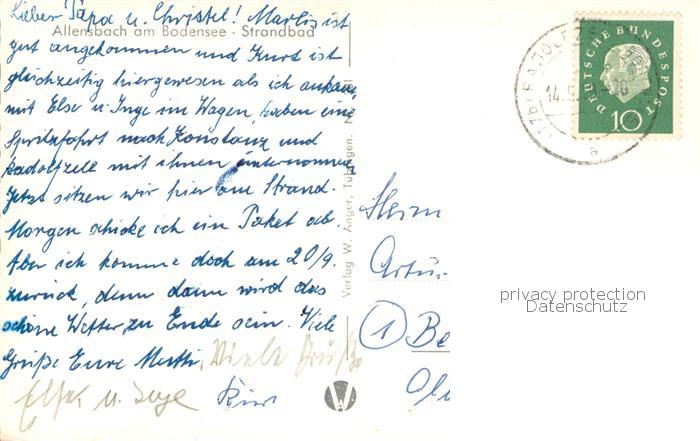 Lieber Papa u. Christel! Marlis ist
Allensbach am Bodensee · Strandbad
gut angekommen und Kurt ist
gleichzeitig hiergewesen als ich ankam
mit Else u. Inge im Wagen, haben eine
Spritzfahrt nach Konstanz und
Radolfzell mit ihnen unternommen
Jetzt sitzen wir hier am Strand.
Morgen schicke ich ein Paket ab.
Aber ich komme doch am 20/9.
zurück, denn dann wird das
schöne Wetter zu Ende sein. Viele
Grüße Eure Mutti, Viele Grüße
u. Inge Kurt
Verlag W. Anger, Tübingen.
W
DEUTSCHE BUNDESPOST
10
14.
a
Artur
1 Be
privacy protection
Datenschutz